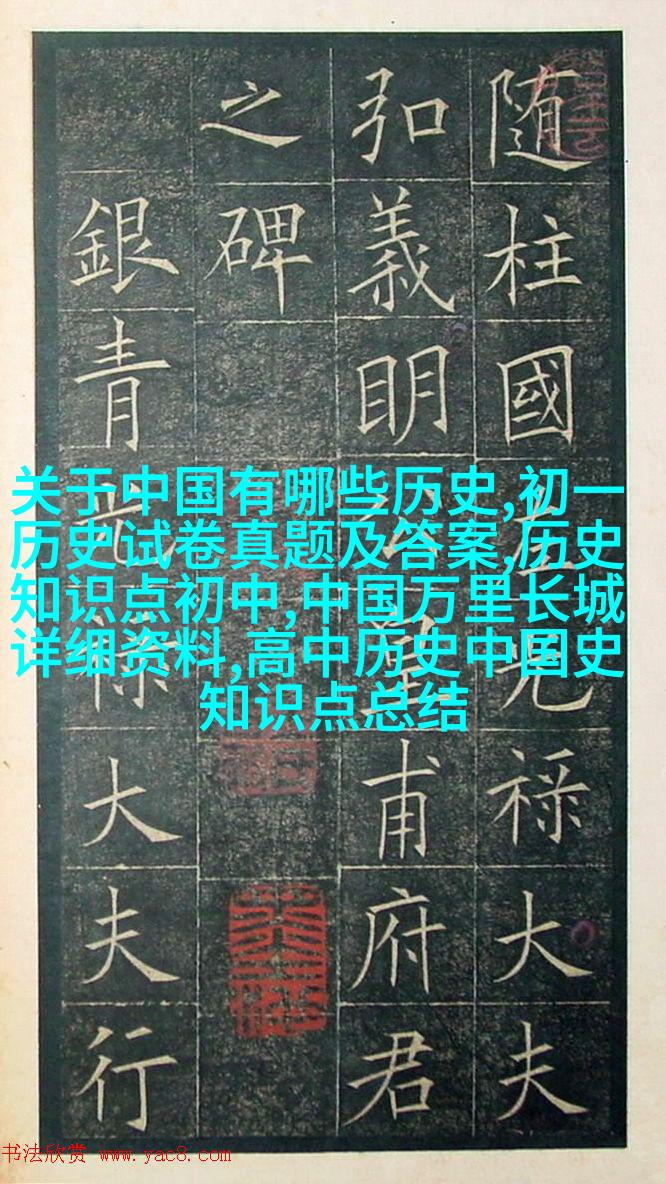 随柱國左光禄大夫
弘義眀公皇甫府君
之碑
銀青光禄大夫行
关于中国有哪些历史,初一
历史试卷真题及答案,历史
知识点初中,中国万里长城
详细资料,高中历史中国史
知识点总结
书法欣赏 www.yac8.com